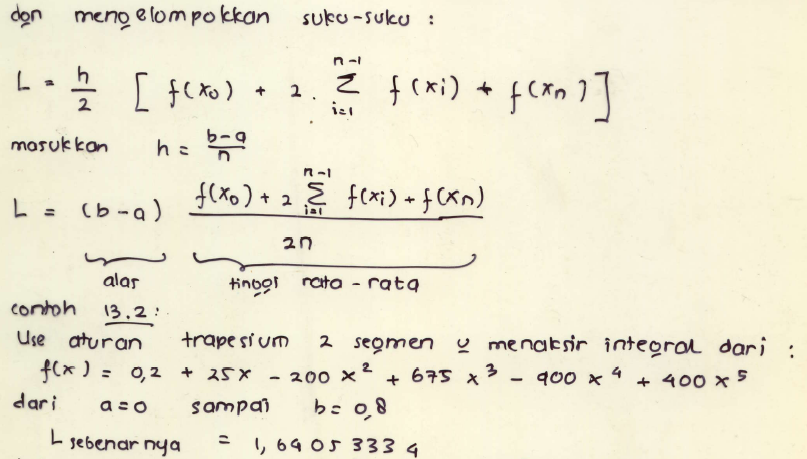 dan mengelompokkan suku-suku :
L = h/2 [ f(x₀) + 2 . Σᵢ₌₁ⁿ⁻¹ f(xi) + f(xₙ) ]
masukkan h = b-a/n
L = (b-a) f(x₀) + 2 Σᵢ₌₁ⁿ⁻¹ f(xi) + f(xₙ) / 2n
alas tinggi rata-rata
contoh 13.2:
Use aturan trapesium 2 segmen u menaksir integral dari :
f(x) = 0,2 + 25x - 200 x² + 675 x³ - 900 x⁴ + 400 x⁵
dari a=0 sampai b= 0,8
L sebenarnya = 1,64053334